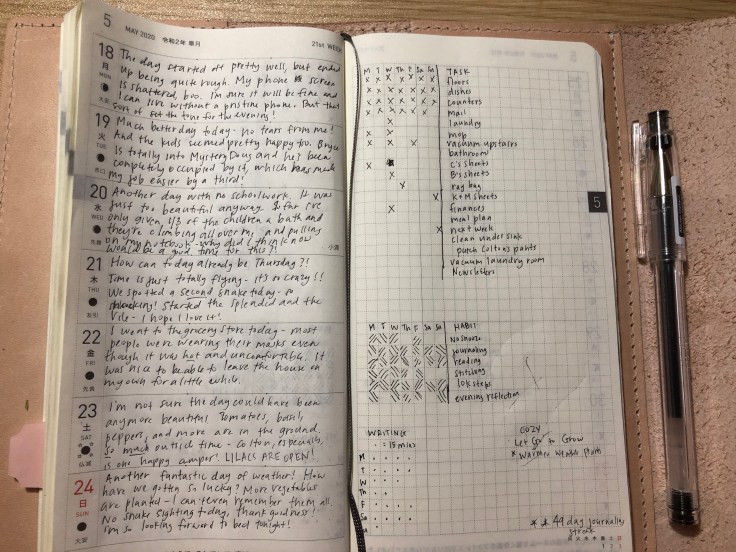 5 MAY 2020 令和2年 皐月 21st WEEK
18 The day started off pretty well, but ended
月 up being quite rough. My phone screen
MON is shattered, boo. I'm sure it will be fine and
I can live without a pristine phone. But that
大安 sort of set the tone for the evening!
19 Much better day today - no tears from me!
火 And the kids seemed pretty happy too. Bryce
TUE is totally into Mystery Dogs and he's been
赤口 completely occupied by it, which has made
my job easier by a third!
20 Another day with no schoolwork. It was
水 just too beautiful anyway. So far I've
WED only given 1/3 of the children a bath and
先勝 they're climbing all over me and pulling
on my notebook - why did I think now 小満
would be a good time for this?!
21 How can today already be Thursday?!
木 Time is just totally flying - it's so crazy!!
THU We spotted a second snake today - so
友引 shocking! Started The Splendid and the
Vile - I hope I love it!
22 I went to the grocery store today - most
金 people were wearing their masks even
FRI though it was hot and uncomfortable. It
先負 was nice to be able to leave the house on
my own for a little while.
23 I'm not sure the day could have been
土 any more beautiful. Tomatoes, basil,
SAT peppers, and more are in the ground.
仏滅 So much outside time - Colton, especially,
is one happy camper! LILACS ARE OPEN!
24 Another fantastic day of weather! How
日 have we gotten so lucky? More vegetables
SUN are planted - I can't even remember them all.
大安 No snake sighting today, thank goodness!
I'm so looking forward to bed tonight!
M T W Th F Sa Su TASK
floors
dishes
counters
mail
laundry
mop
vacuum upstairs
bathroom
C's sheets
B's sheets
rag bag
K+M sheets
finances
meal plan
next week
clean under sink
patch Colton's pants
vacuum laundry room
Newsletters
5
M T W Th F Sa Su HABIT
No snooze
journaling
reading
stitching
10K steps
evening reflection
WRITING
. = 15 mins
M
T
W
Th
F
Sa
COZY
Let Go to Grow
* Warmer Weather
* 49 day journaling